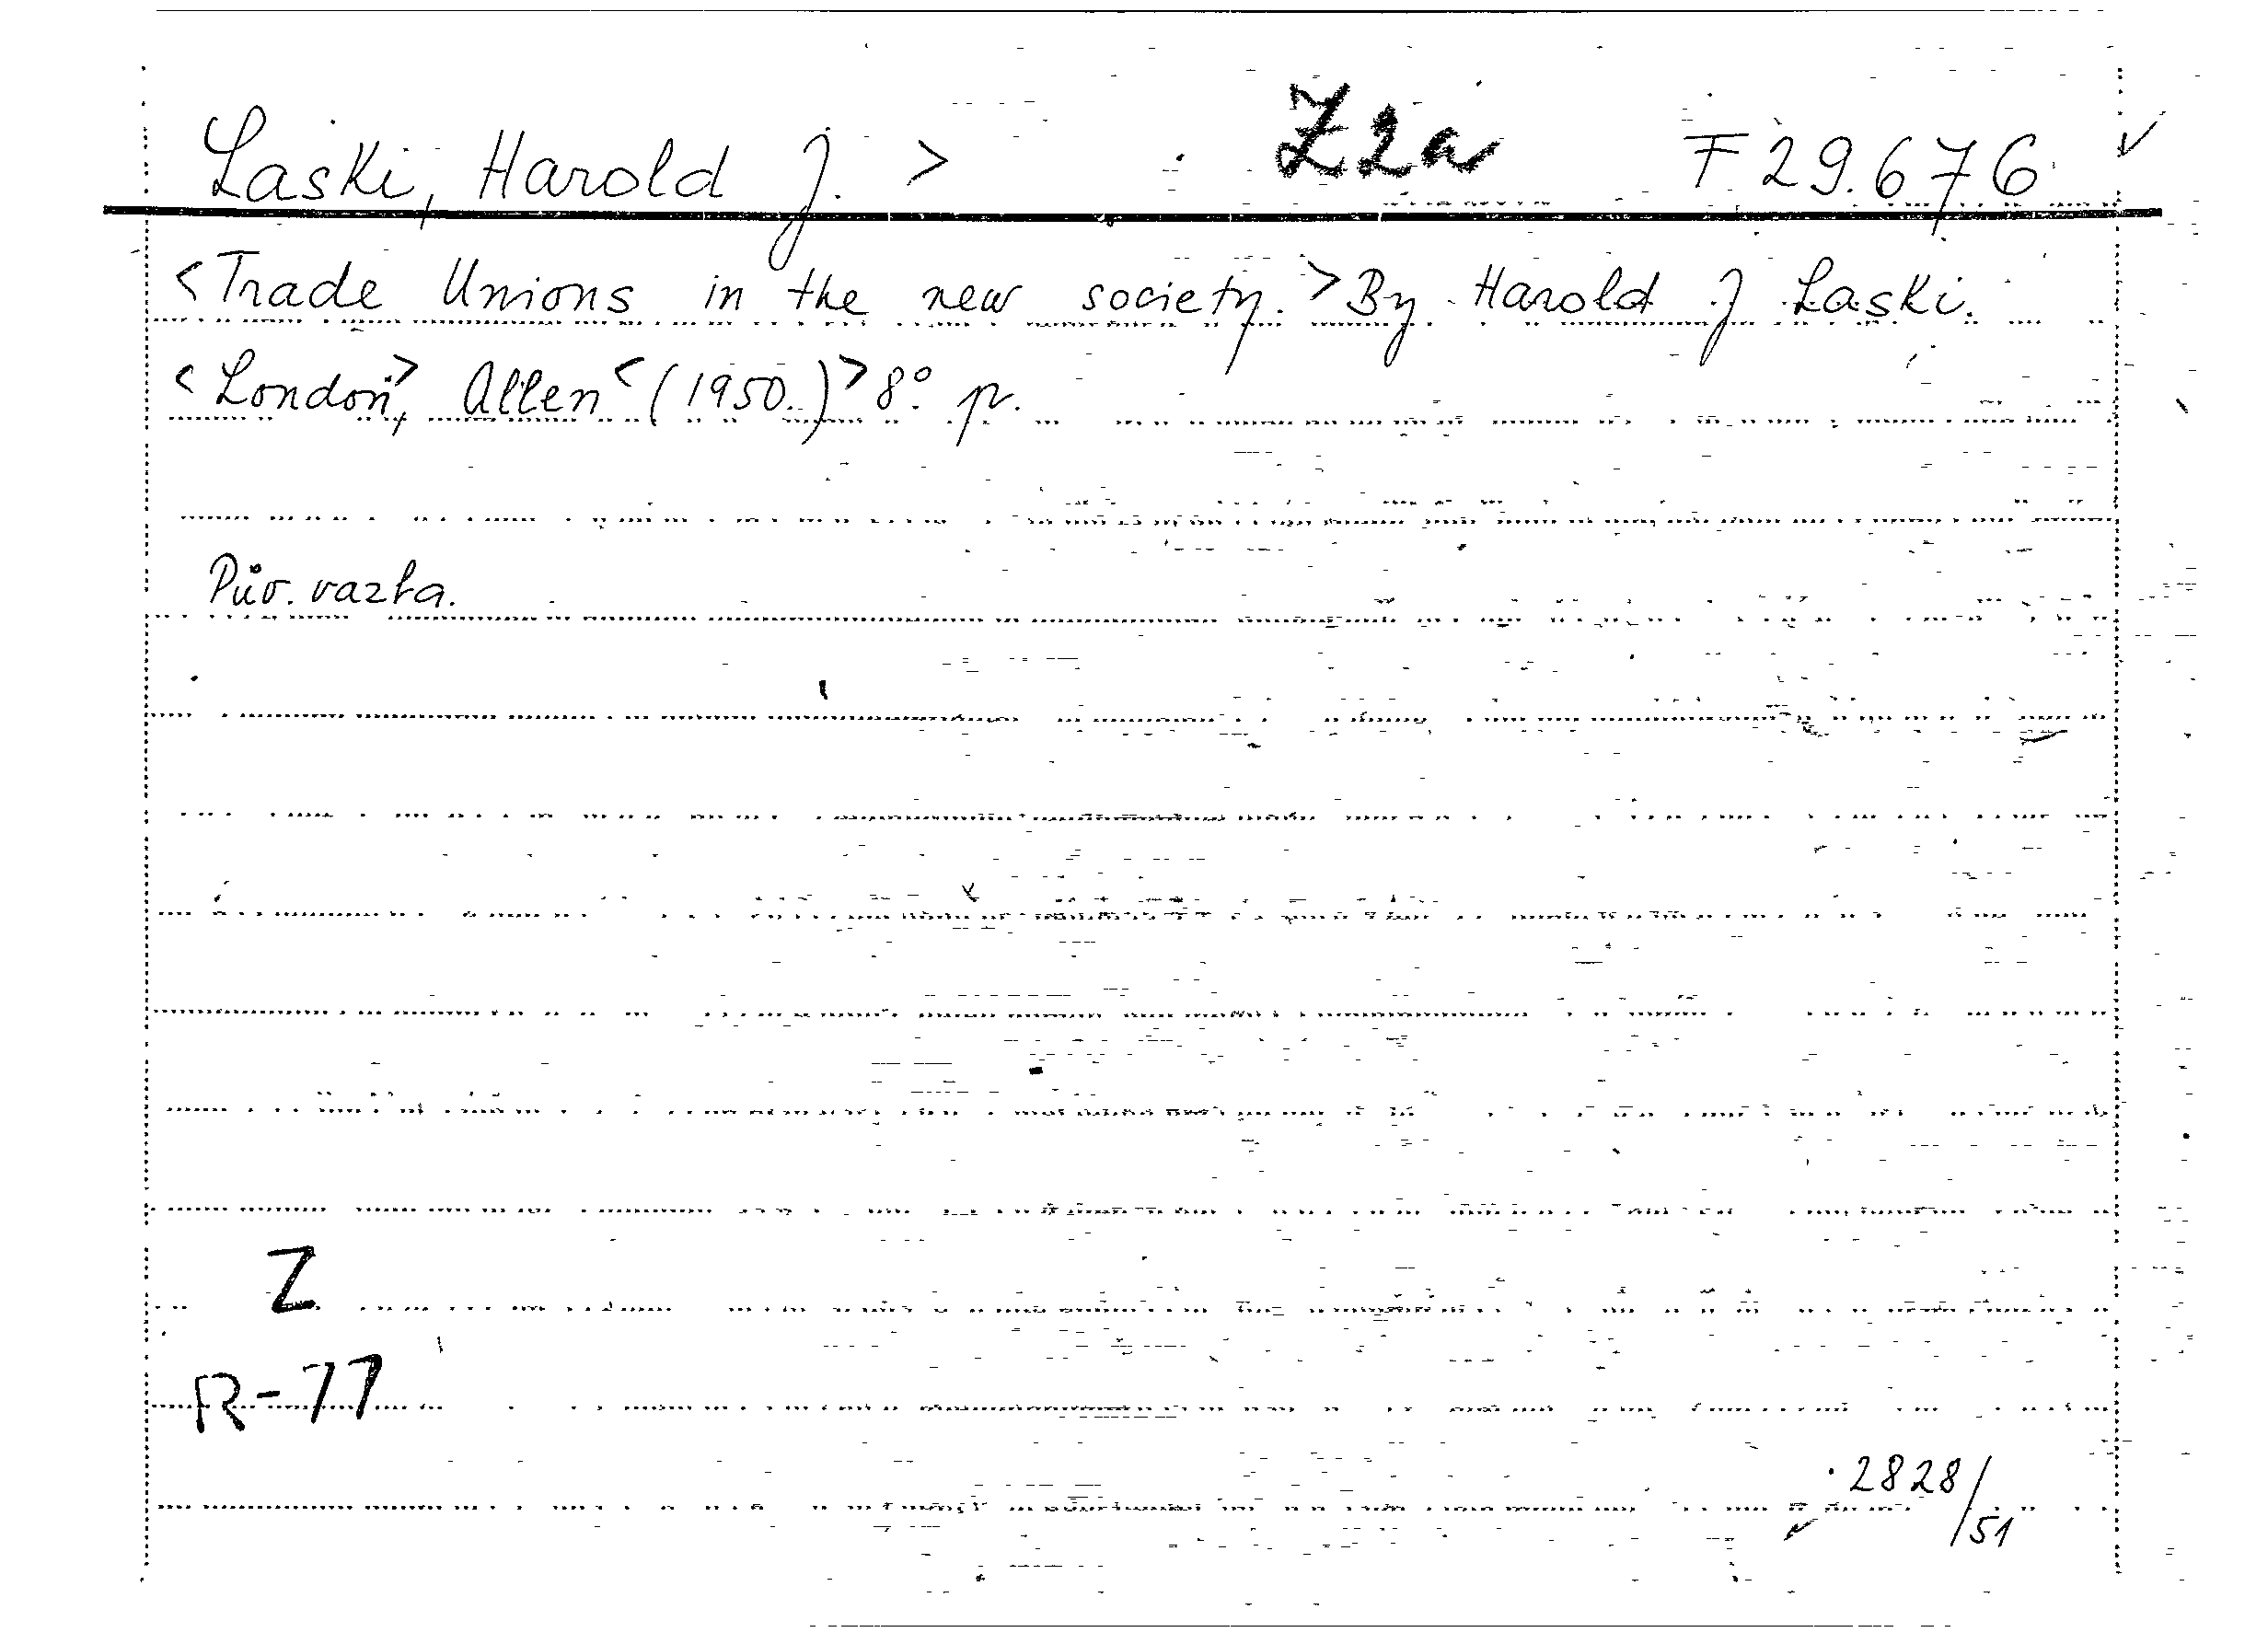 Laski, Harold J. > Z2a F 29.676 ✓
<Trade Unions in the new society.> By Harold J Laski.
<London,> Allen <(1950.)> 8° p.
Pův. vazba.
Z
R-77
2828/51